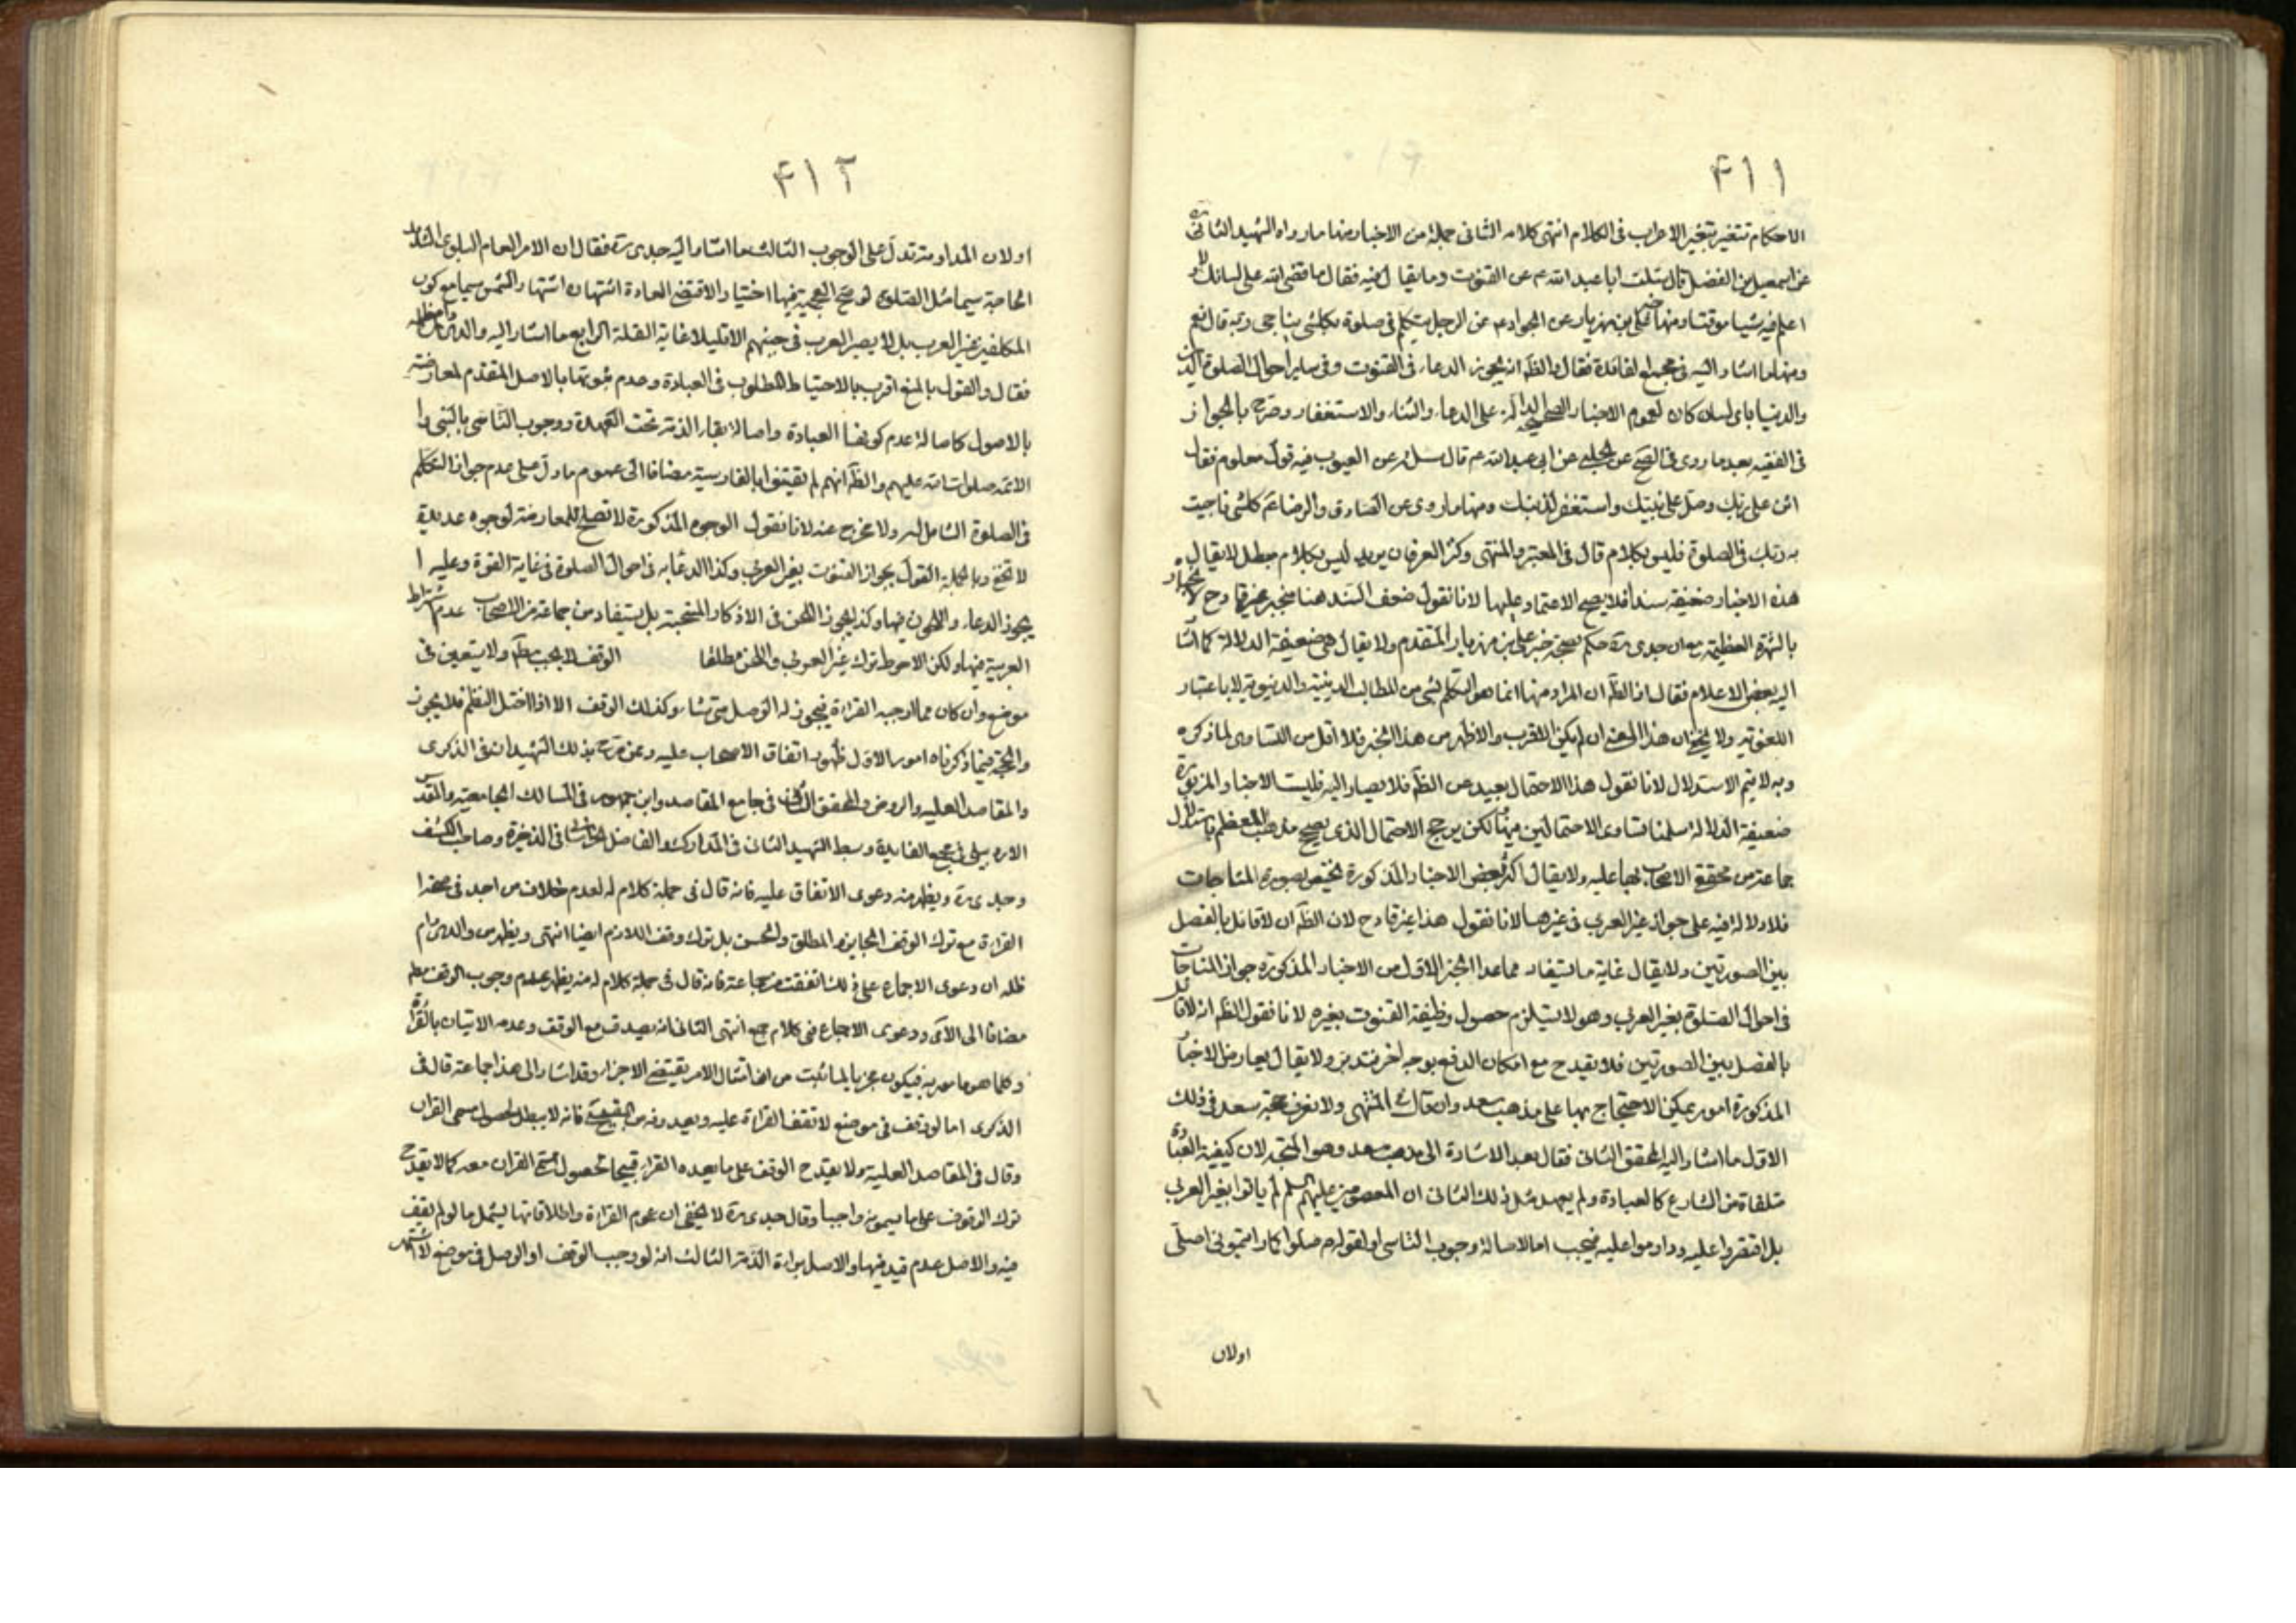 ٤١١
الاحكام تتغير بتغير الاعراب فى الكلام انتهى كلامه الثانى جملة من الاخبار منها ما رواه الشهيد الثانى ره
عن اسمعيل بن الفضل قال سئلت ابا عبد الله ع عن القنوت وما يقال فيه فقال ما قضى الله على لسانك ولا
اعلم فيه شيئا موقتا ومنها خبر على بن مهزيار عن الجواد ع عن الرجل يتكلم فى صلوة بكلشى يناجى ربه قال نعم
ومنها ما اشار اليه فى مجمع الفائدة فقال والظ انه يجوز الدعاء فى القنوت وفى ساير احوال الصلوة للدين
والدنيا باى لسان كان لعموم الاخبار الصحيحة الدالة على الدعاء والثناء والاستغفار وصرح بالجواز
فى الفقيه بعد ما روى فى الصحيح عن الحلبى عن ابى عبد الله ع قال سئله عن القنوت فيه قول معلوم فقال
اثن على ربك وصل على نبيك واستغفر لذنبك ومنها ما روى عن الصادق والرضا ع كلشى ناجيت
به ربك فى الصلوة فليس بكلام قال فى المعتبر والمنتهى وكنز العرفان يريد ليس بكلام مبطل لا يقال
هذه الاخبار ضعيفة سندا فلا يصح الاعتماد عليها لانا نقول ضعف السند هنا غير قادح لانجباره
بالشهرة العظيمة مع ان جدى ره حكم بصحة خبر على بن مهزيار المتقدم ولا يقال هى ضعيفة الدلالة كما اشا
اليه بعض الاعلام فقال ان الظ ان المراد منها انما هو التكلم بشى من المطالب الدينية والدنيوية لا باعتبار
اللغوية ولا يخفى ان هذا المعنى ان لم يكن الاقرب والاظهر من هذا الخبر فلا اقل من التساوى لما ذكره
وبه لا يتم الاستدلال لانا نقول هذا الاحتمال بعيد عن الظ فلا يصار اليه فليست الاخبار المزبورة
ضعيفة الدلالة سلمنا تساوى الاحتمالين منها لكن يرجح الاحتمال الذى يصح مذهب المعظم باستدلال
جماعة من محققى الاصحاب بها عليه ولا يقال اكثر بعض الاخبار المذكورة يختص بصورة المناجات
فلا دلالة فيه على جواز غير العربى فى غيرها لانا نقول هذا غير قادح لان الظ ان لا قائل بالفصل
بين الصورتين ولا يقال غاية ما يستفاد مما عدا الخبر الاول من الاخبار المذكورة جواز المناجات
فى احوال الصلوة بغير العربى وهو لا يستلزم حصول وظيفة القنوت بغيره لانا نقول الظ انه لا قائل
بالفصل بين الصورتين فلا يقدح مع امكان الدفع بوجه اخر فتدبر ولا يقال يعارض الاخبار
المذكورة امور يمكن الاحتجاج بها على مذهب سعد وان قال فى المنتهى ولا نعرف حجة سعد فى ذلك
الاول ما اشار اليه المحقق الثانى فقال بعد الاشارة الى مذهب سعد وهو المتجه لان كيفية العبادة
متلقاة من الشارع كالعبادة ولم يعهد مثل ذلك الثانى ان المعصومين عليهم السلم لم ياتوا بغير العربى
بل اقتصروا عليه وداوموا عليه فيجب اما لاصالة وجوب التاسى او لقوله ص صلوا كما رايتمونى اصلى
اولان
٤١٢
اولان المداومة تدل على الوجوب الثالث ما اشار اليه جدى ره فقال ان الامر العام البلوى الشديد
الحاجة سيما مثل الصلوة لو صح العجمية فيها اختيارا لاقتضى العادة اشتهاره اشتهار الشمس سيما مع كون
المكلفين غير العرب بل لا يصير العرب فى جنبهم الا قليلا غاية القلة الرابع ما اشار اليه والدى دام ظله
فقال والقول بالمنع اقرب بالاحتياط المطلوب فى العبادة وعدم ثبوتها بالاصل المتقدم لمعارضته
بالاصول كاصالة عدم كونها العبادة واصالة بقاء الذمة تحت العهدة ووجوب التاسى بالنبى وا
الائمة صلوات الله عليهم والظ انهم لم يقنتوا بالفارسية مضافا الى عموم ما دل على عدم جواز التكلم
فى الصلوة الشامل له ولا مخرج عنه لانا نقول الوجوه المذكورة لا تصلح للمعارضة لوجوه عديدة
لا تخفى وبالجملة القول بجواز القنوت بغير العربى وكذا الدعاء به فى احوال الصلوة فى غاية القوة وعليه ا
يجوز الدعاء واللحن فيها وكذا يجوز اللحن فى الاذكار المستحبة بل يستفاد من جماعة من الاصحاب عدم اشتراط
العربية فيها ولكن الاحوط ترك غير العربى واللحن مطلقا الوقف لا يجب مط ولا يتعين فى
موضع وان كان مما اوجبه القراء فيجوز له الوصل متى شاء وكذلك الوقف الا اذا اختل النظم فلا يجوز
والحجة فيما ذكرناه امور الاول ظهور اتفاق الاصحاب عليه وممن صرح بذلك الشهيدان فى الذكرى
والمقاصد العلية والروض والمحقق الثانى فى جامع المقاصد وابن جمهور فى المسالك الجامعية والمقدس
الاردبيلى فى مجمع الفايدة وسبط الشهيد الثانى فى المدارك والفاضل الخراسانى فى الذخيرة وصاحب الكشف
وجدى ره ويظهر منه دعوى الاتفاق عليه فانه قال فى جملة كلام له لعدم خلاف من احد فى صحة ا
القراءة مع ترك الوقف الجايز والمطلق والحسن بل ترك وقف اللازم ايضا انتهى ويظهر من والدى دام
ظله ان دعوى الاجماع على ذلك اتفقت من جماعة فانه قال فى جملة كلام له منه يظهر عدم وجوب الوقف مط
مضافا الى الاتى ودعوى الاجماع فى كلام جمع انتهى الثانى انه يصدق مع الوقف وعدمه الاتيان بالقراءة
وكلما هو مامور به فيكون مجزيا لما ثبت من ان امتثال الامر يقتضى الاجزاء وقد اشار الى هذا جماعة قال فى
الذكرى اما لو وقف فى موضع لا تقف القراءة عليه ويعدونه من القبيح فانه لا يبطل لحصول مسمى القران
وقال فى المقاصد العلية ولا يقدح الوقف على ما يعده القراء قبيحا لحصول مسمى القران معه كما لا يقدح
ترك الوقوف على ما يسمونه واجبا وقال جدى ره لا يخفى ان عموم القراءة واطلاقاتها يشمل ما لو لم يقف
فيه والاصل عدم قيد فيها والاصل براءة الذمة الثالث انه لو وجب الوقف او الوصل فى موضع لاشتهر